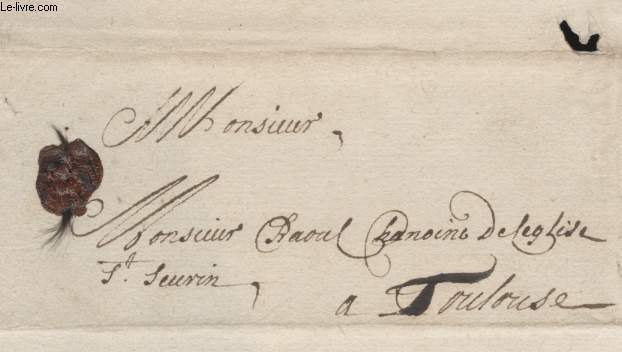 Le-livre.com
Monsieur,
Monsieur Raoul Chanoine de leglise
St. Seurin, a Toulouse